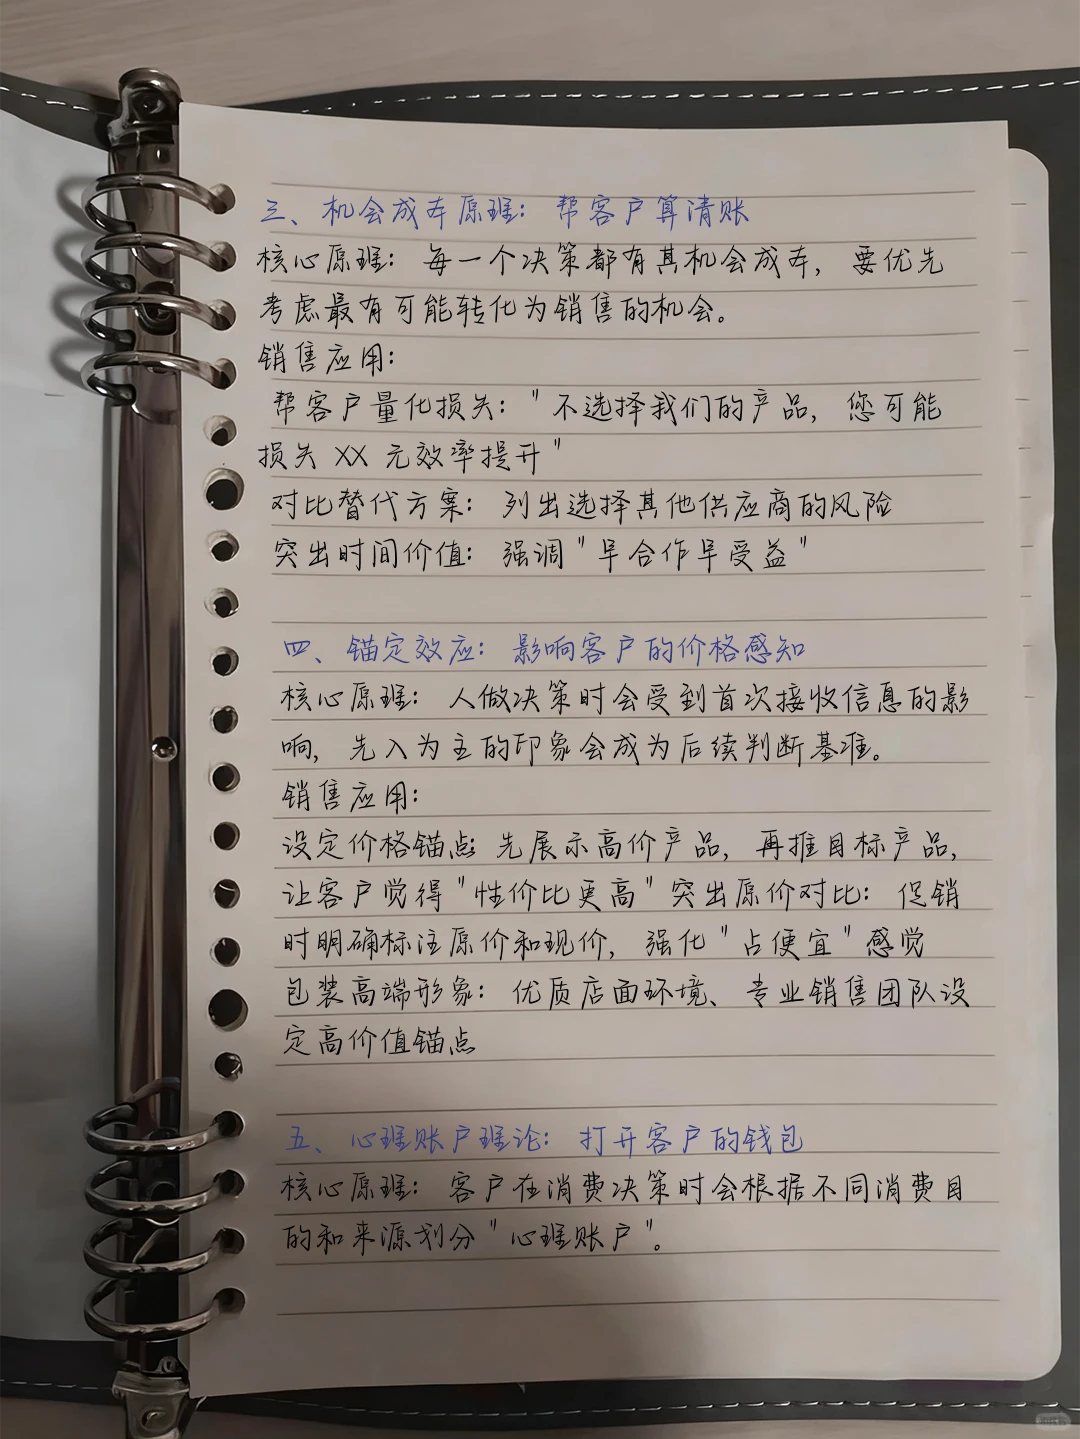 三、机会成本原理：帮客户算清账
核心原理：每一个决策都有其机会成本，要优先
考虑最有可能转化为销售的机会。
销售应用：
帮客户量化损失："不选择我们的产品，您可能
损失 XX 元效率提升"
对比替代方案：列出选择其他供应商的风险
突出时间价值：强调"早合作早受益"
四、锚定效应：影响客户的价格感知
核心原理：人做决策时会受到首次接收信息的影
响，先入为主的印象会成为后续判断基准。
销售应用：
设定价格锚点：先展示高价产品，再推目标产品，
让客户觉得"性价比更高"突出原价对比：促销
时明确标注原价和现价，强化"占便宜"感觉
包装高端形象：优质店面环境、专业销售团队设
定高价值锚点
五、心理账户理论：打开客户的钱包
核心原理：客户在消费决策时会根据不同消费目
的和来源划分"心理账户"。